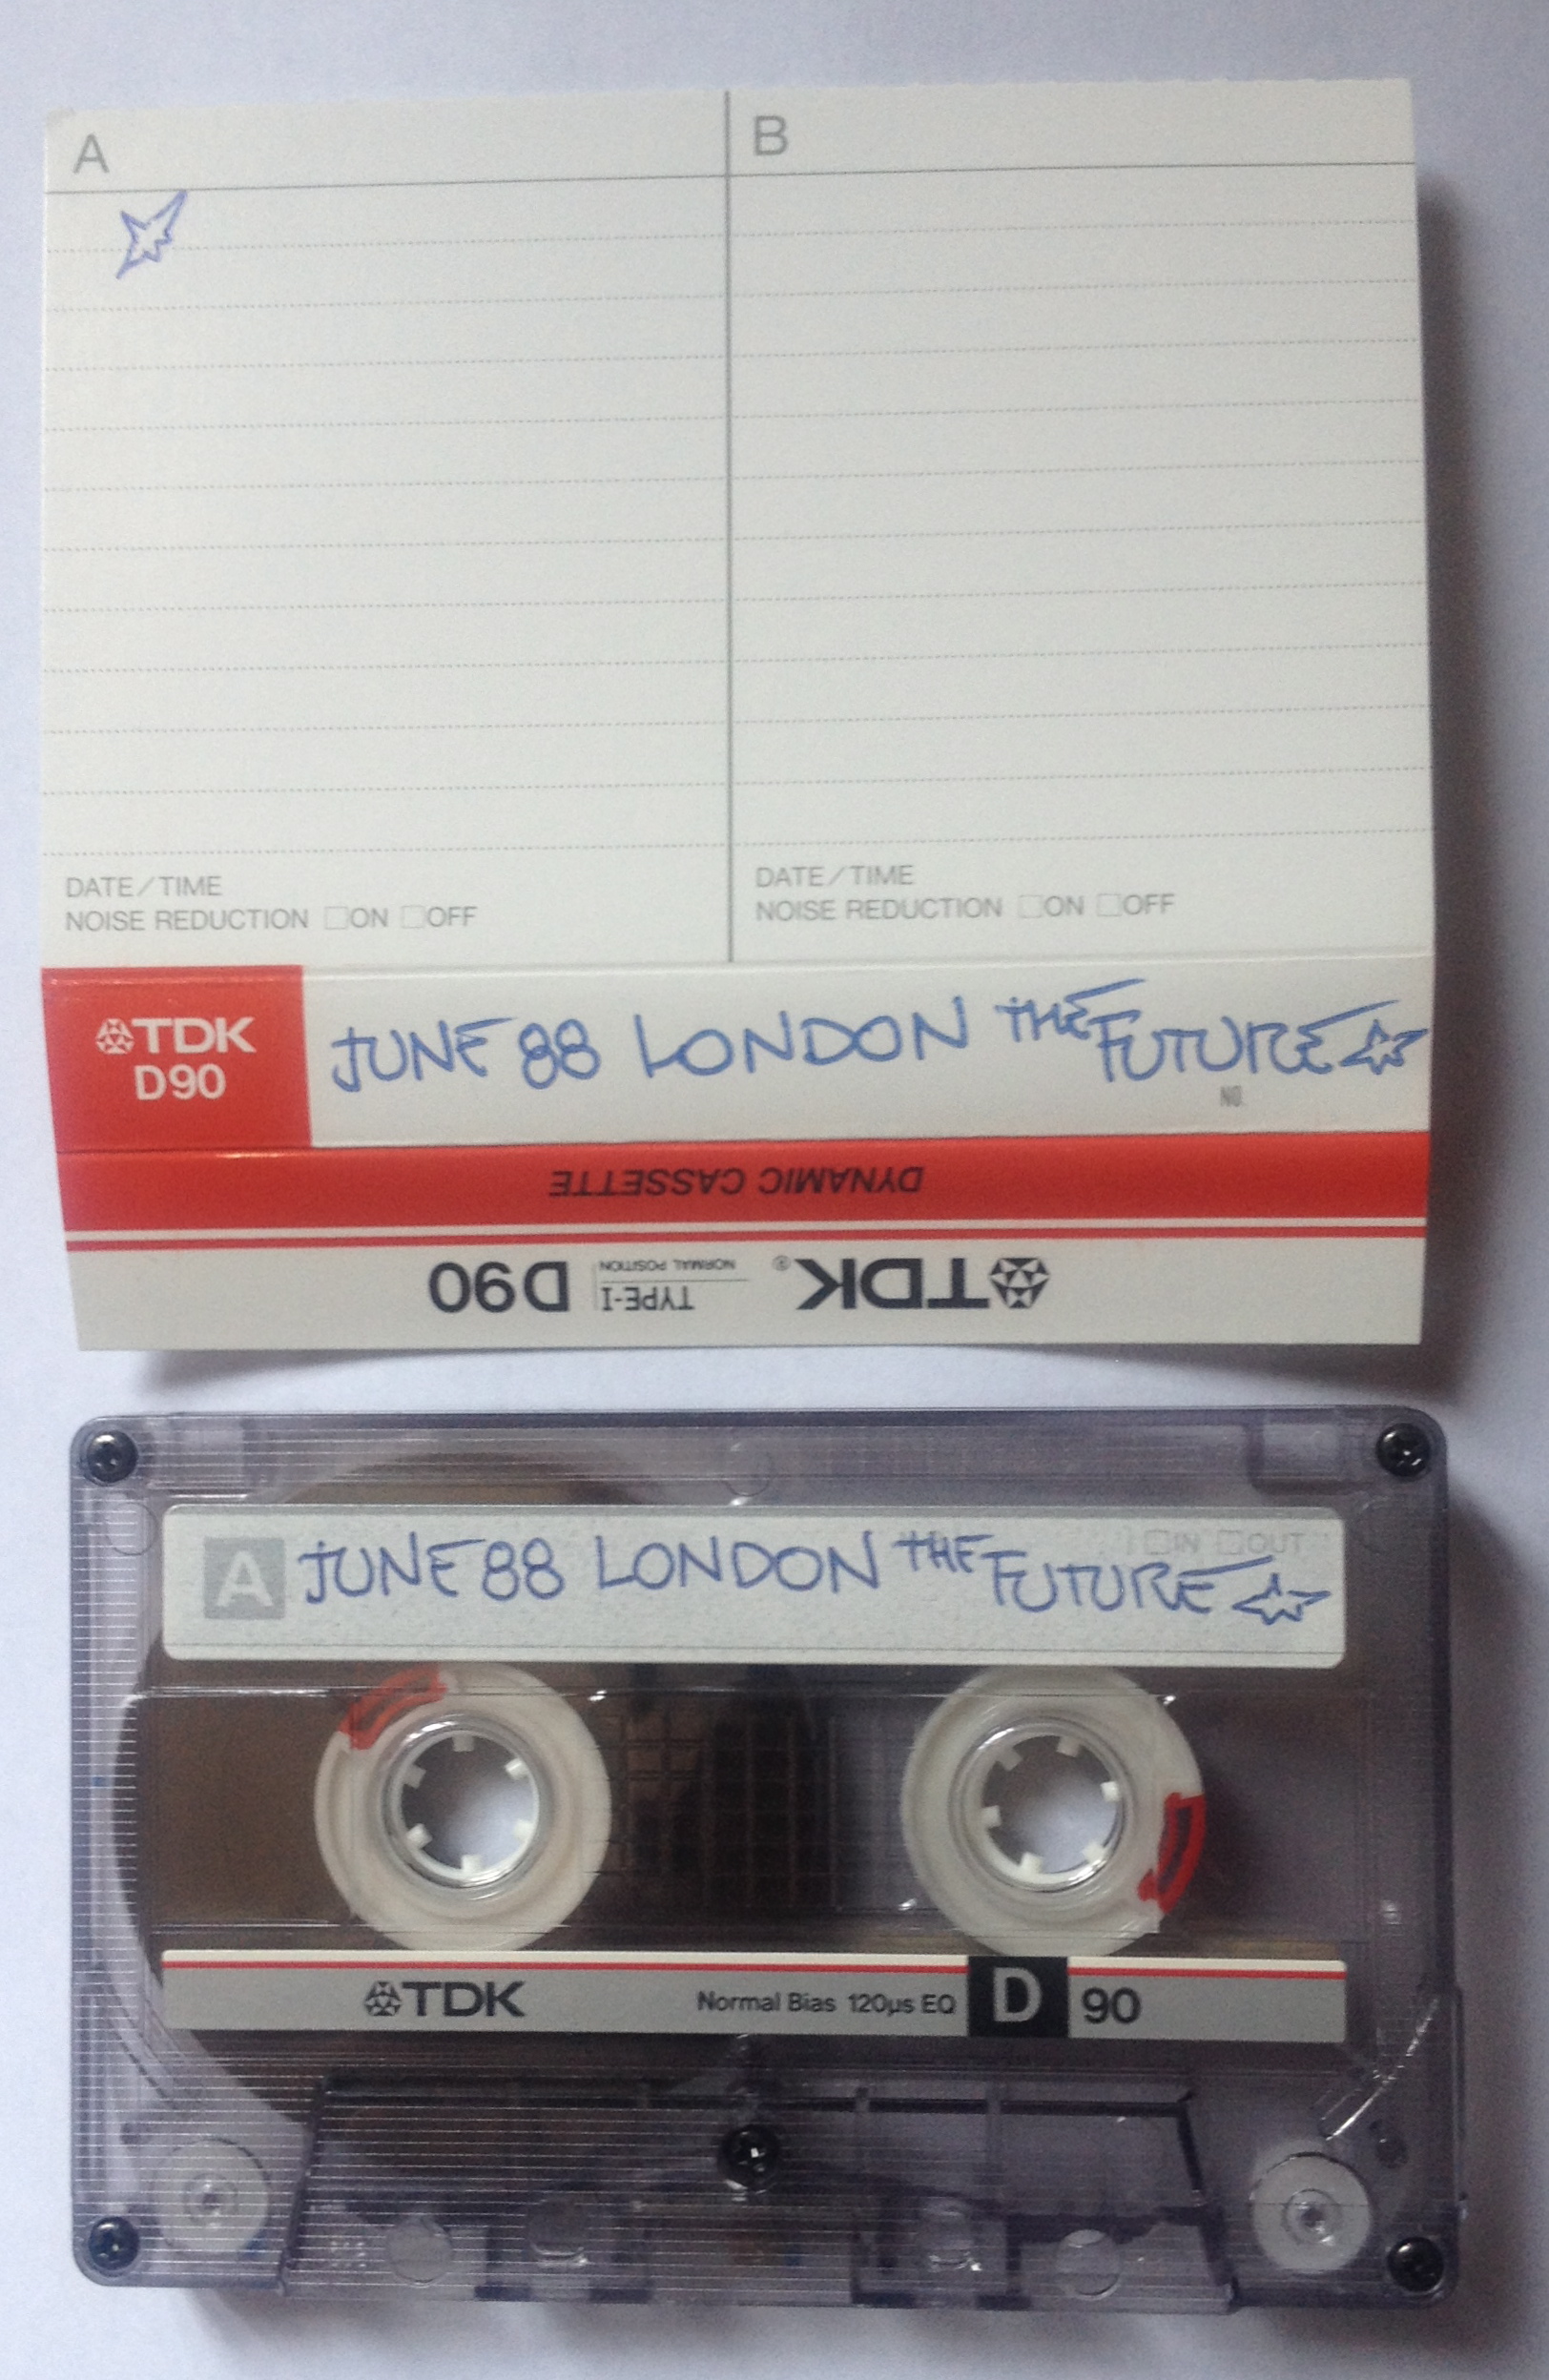 A
B
DATE/TIME
NOISE REDUCTION □ON □OFF
DATE/TIME
NOISE REDUCTION □ON □OFF
TDK
D90
JUNE 88 LONDON THE FUTURE
NO.
DYNAMIC CASSETTE
TDK® TYPE-I NORMAL POSITION D90
A JUNE 88 LONDON THE FUTURE
□IN □OUT
TDK Normal Bias 120µs EQ D 90